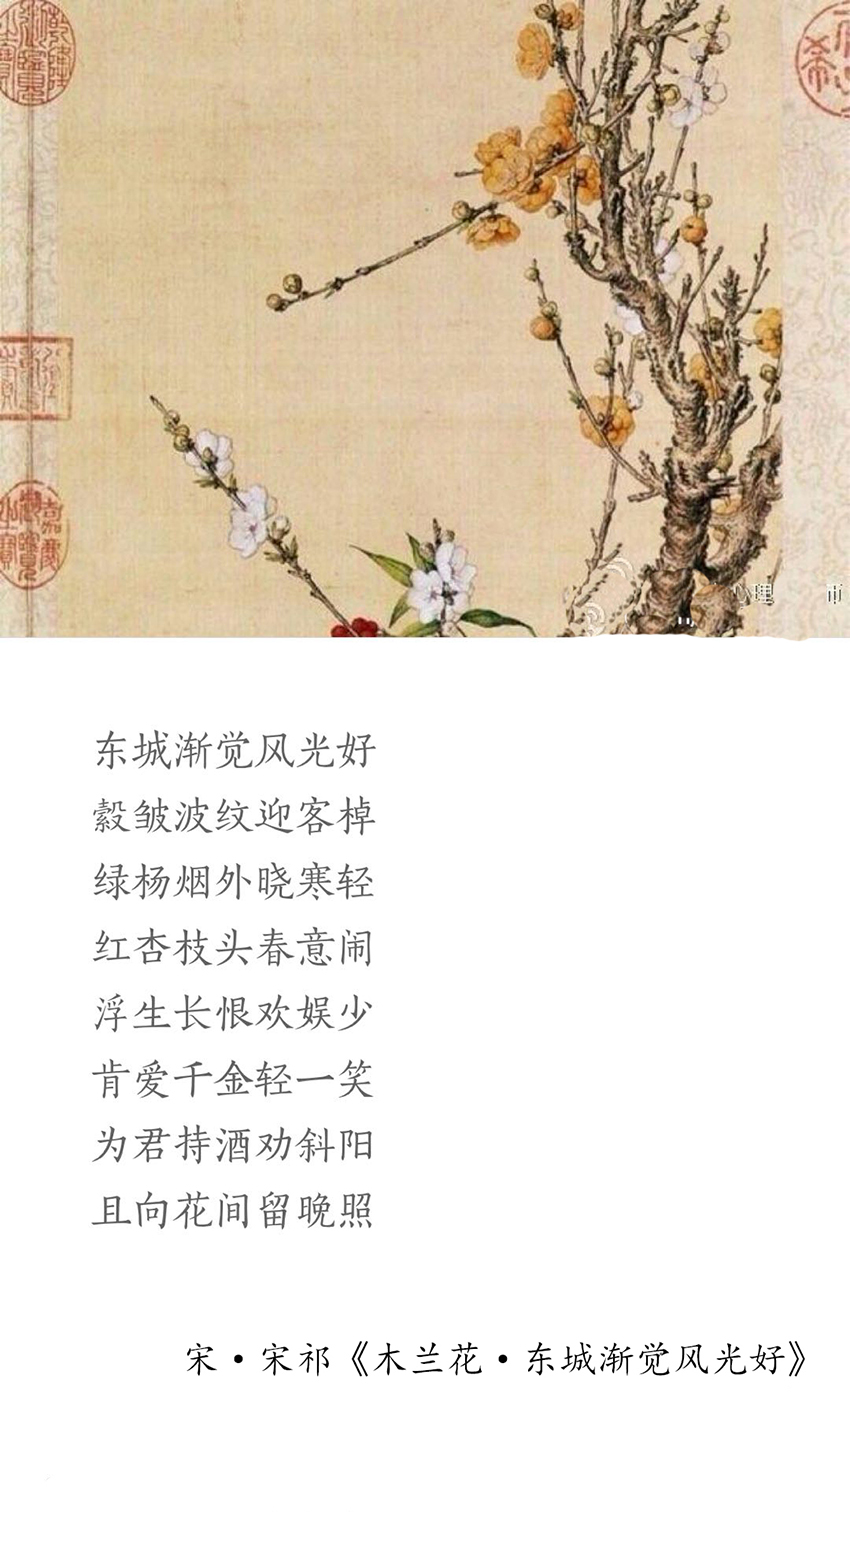 东城渐觉风光好
縠皱波纹迎客棹
绿杨烟外晓寒轻
红杏枝头春意闹
浮生长恨欢娱少
肯爱千金轻一笑
为君持酒劝斜阳
且向花间留晚照
宋·宋祁《木兰花·东城渐觉风光好》